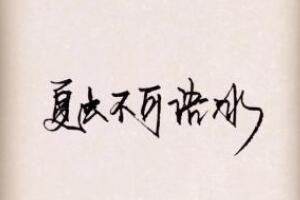 夏虫不可语冰